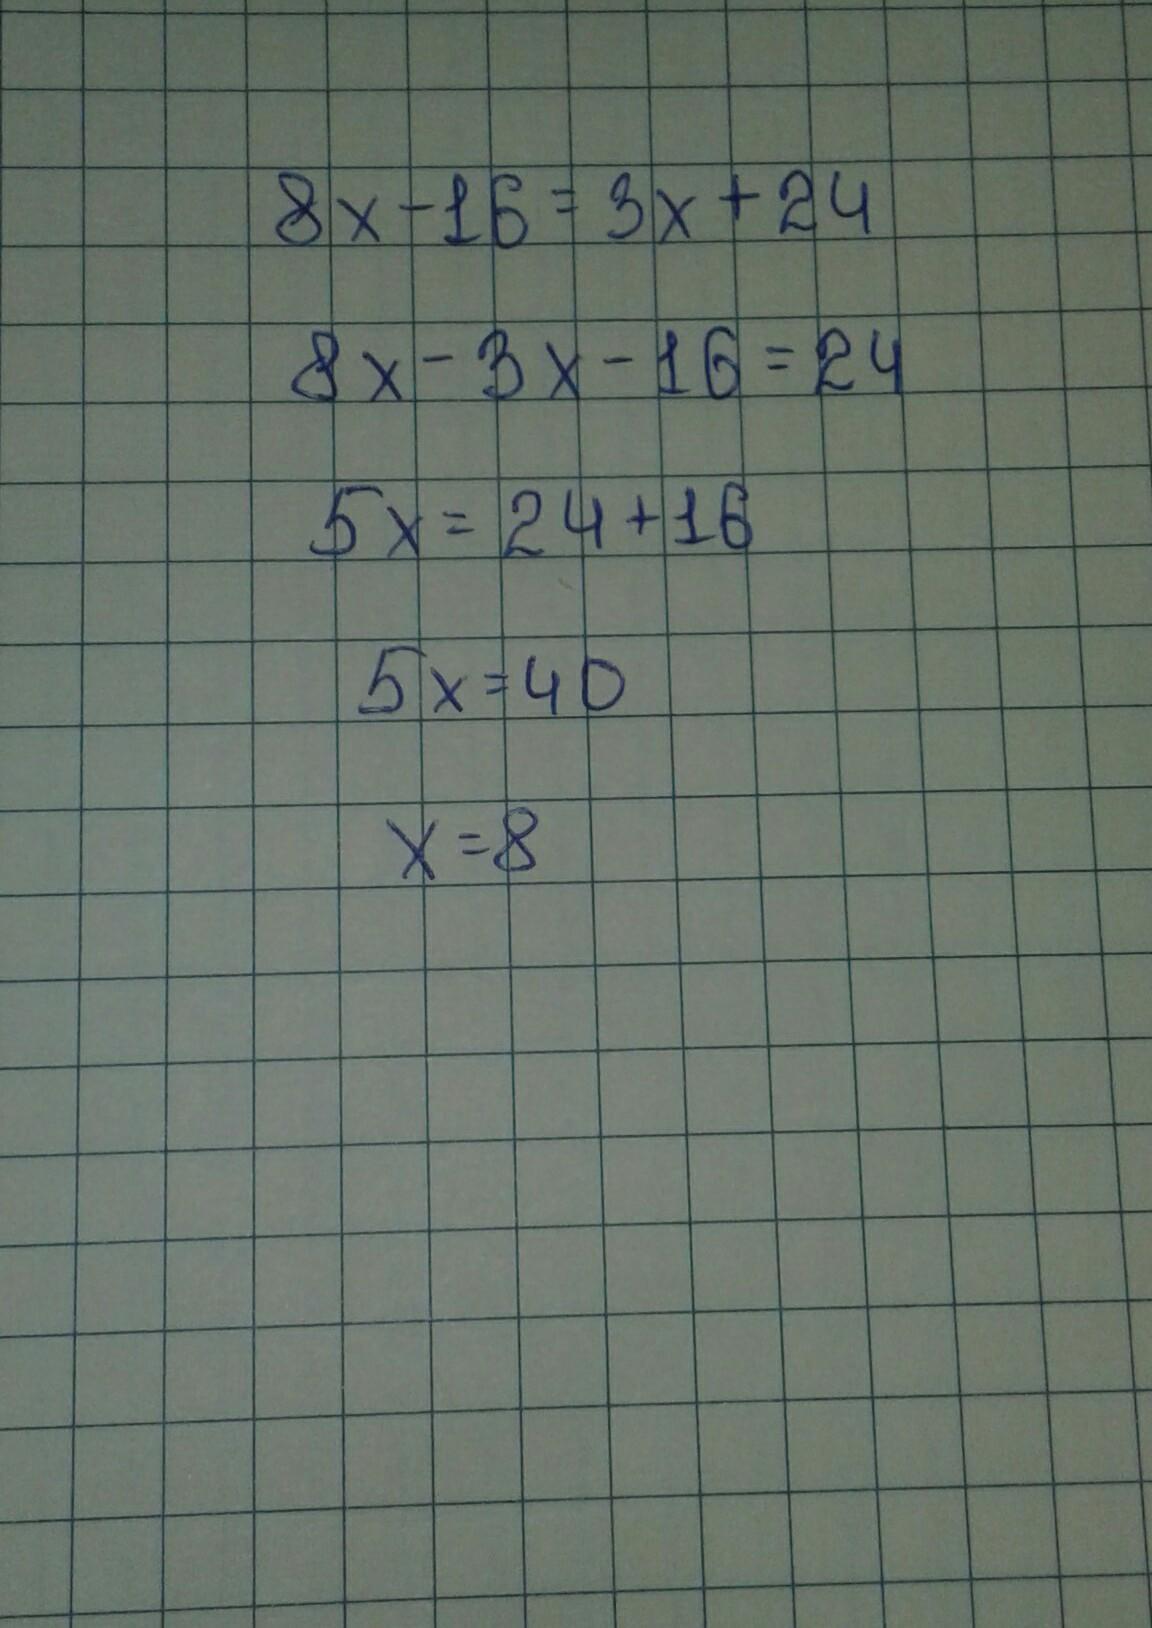 8x-16=3x+24
8x-3x-16=24
5x=24+16
5x=40
x=8